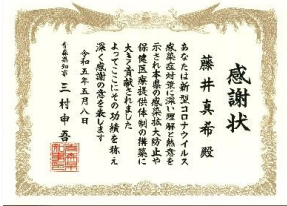 感謝状
藤井真希 殿
あなたは新型コロナウイルス
感染症対策に深い理解と熱意を
示され本県の感染拡大防止や
保健医療提供体制の構築に
大きく貢献されました
よってここにその功績を称え
深く感謝の意を表します
令和五年五月八日
青森県知事 三村申吾